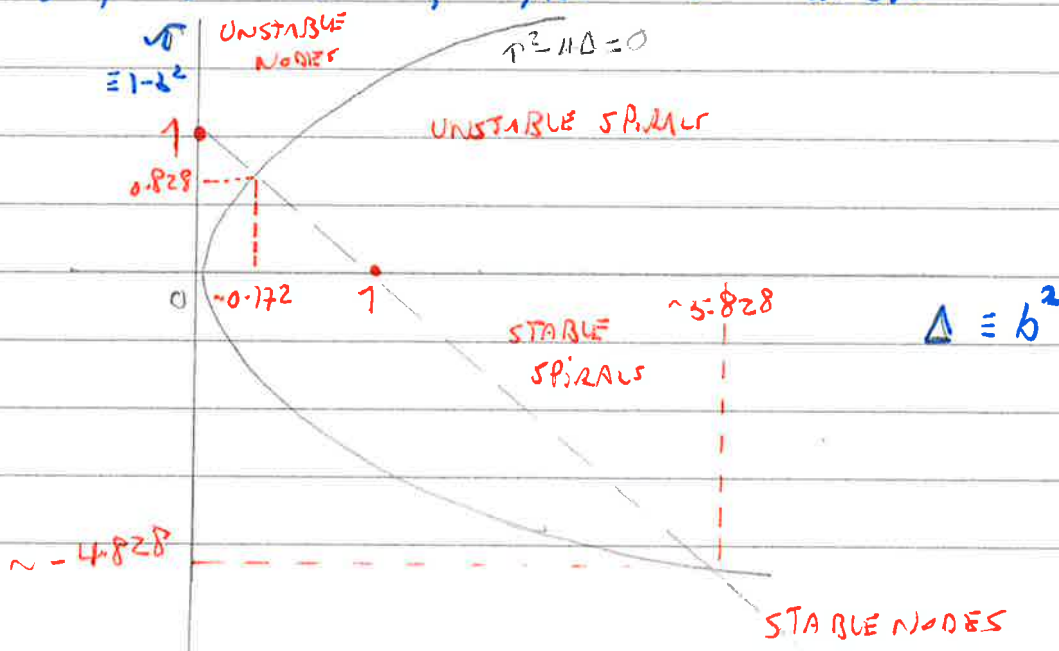 UNSTABLE
NODES
τ
≡ 1-b²
τ² - 4Δ = 0
1
UNSTABLE SPIRALS
0.828
0
~0.172
1
~5.828
Δ ≡ b²
STABLE
SPIRALS
~ -4.828
STABLE NODES